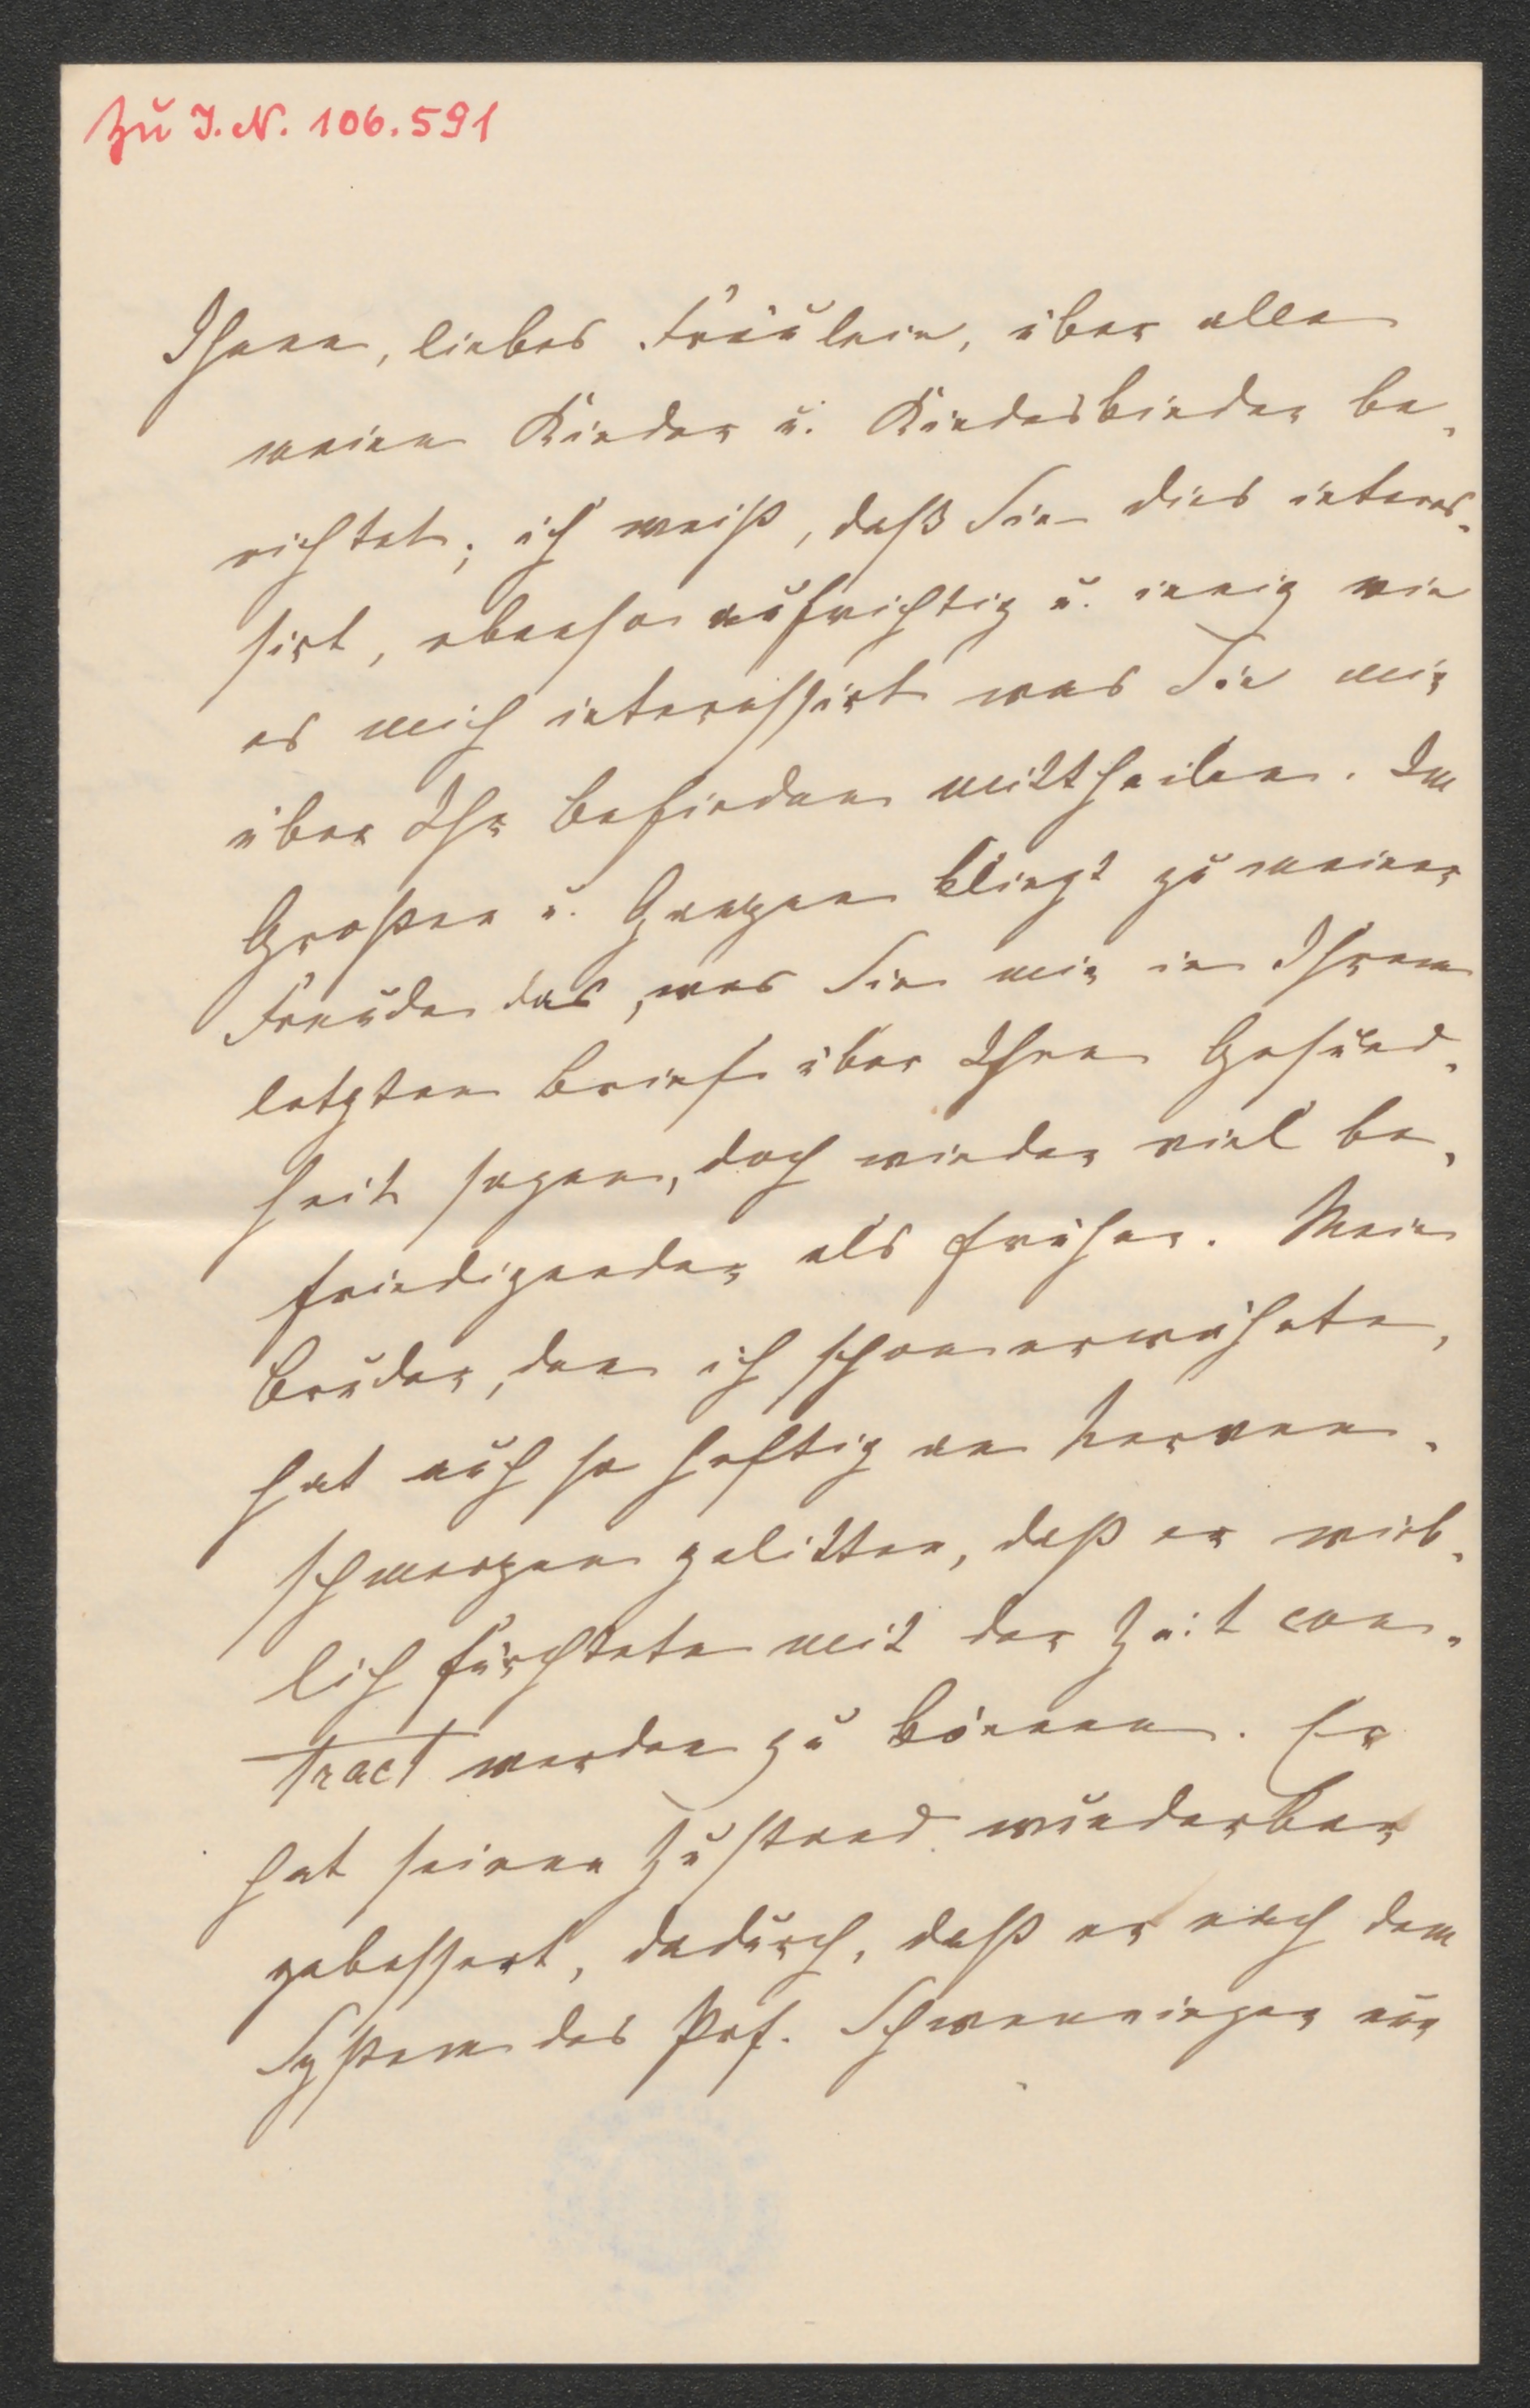 Zu I. N. 106.591
Ihnen, liebes Fräulein, über alle
meine Kinder u. Kindeskinder be-
richtet; ich weiß, daß Sie dies interes-
sirt, ebenso aufrichtig u. innig wie
es mich interessirt was Sie mir
über Ihr Befinden mittheilen. Im
Großen u. Ganzen klingt zu meiner
Freude das, was Sie mir in Ihrem
letzten Briefe über Ihre Gesund-
heit sagen, doch wieder viel be-
friedigender als früher. Mein
Bruder, den ich schon erwähnte,
hat auch so heftig an Nerven-
schmerzen gelitten, daß er wirk-
lich fürchtete mit der Zeit con-
tract werden zu können. Er
hat seinen Zustand wunderbar
gebessert, dadurch, daß er nach dem
System des Prof. Schwenninger nur